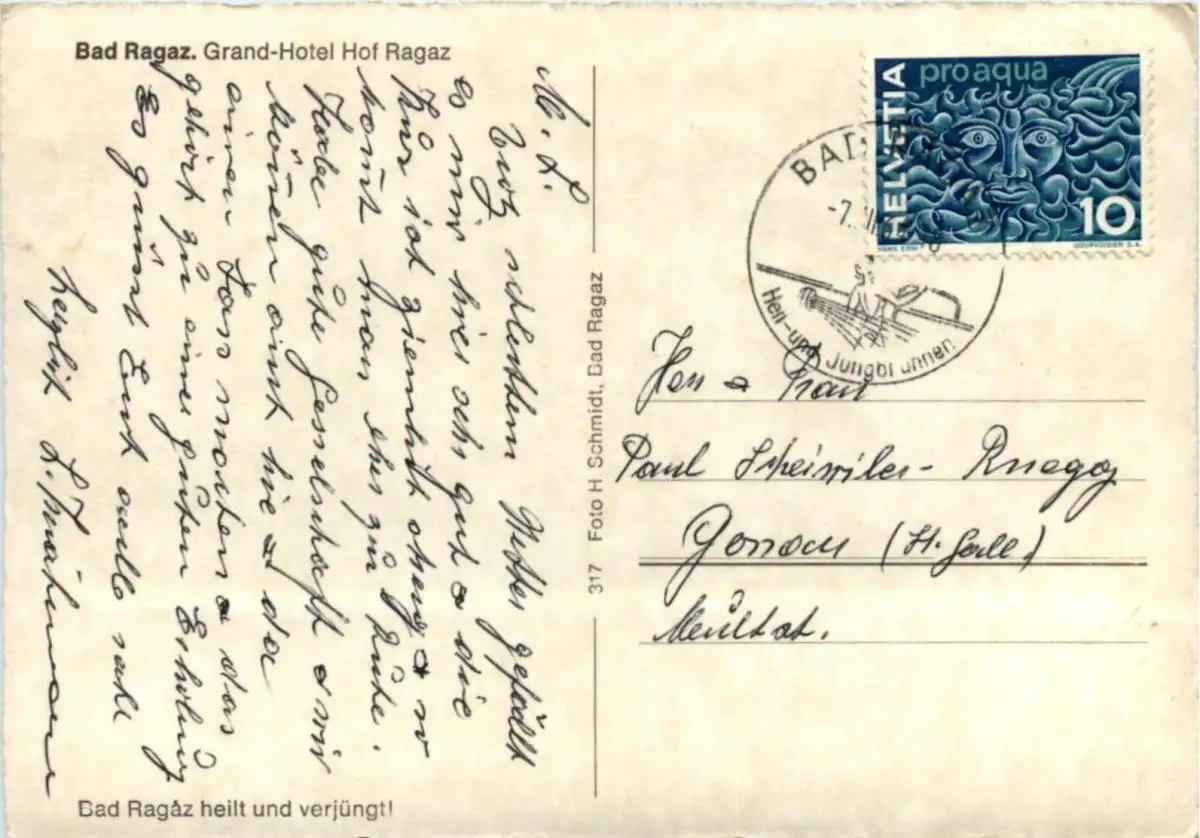 Bad Ragaz. Grand-Hotel Hof Ragaz
M. L.
Trotz schlechtem Wetter gefällt
es mir hier sehr gut & die
Kur ist ziemlich streng &
komt man eher zur Ruhe.
Habe gute Gesselschaft & wir
können einst hie & da
einen Jass machen & das
gehört zu einer guten Erholung
Es grüsst Euch alle recht
herzlich
Bad Ragaz heilt und verjüngt!
317 Foto H. Schmidt, Bad Ragaz
HELVETIA
pro aqua
10
HANS ERNI
COURVOISIER S.A.
BAD
-7.
Heil- und Jungbrunnen
Herr & Frau
Paul Scheiwiler-
Gossau (St. Gall.)